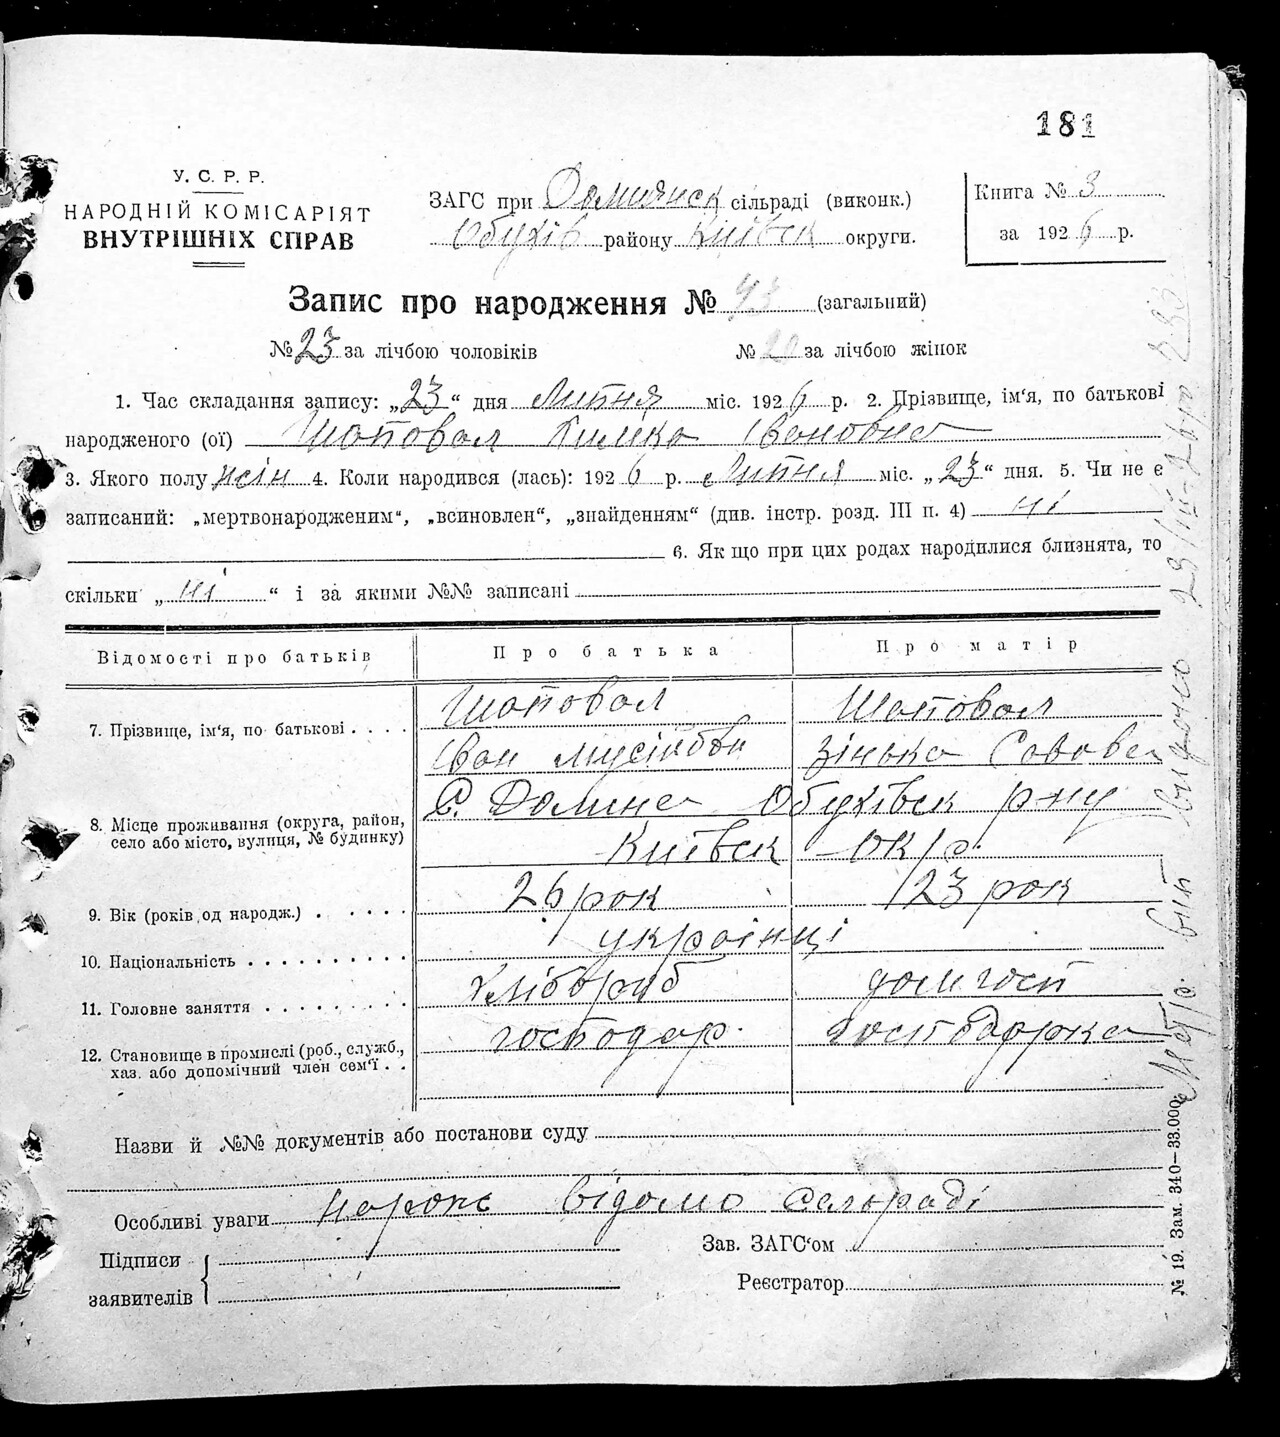 181
У. С. Р. Р.
НАРОДНІЙ КОМІСАРІЯТ
ВНУТРІШНІХ СПРАВ
ЗАГС при Долинянск сільраді (виконк.)
Обухів району Київск округи.
Книга № 3
за 1926 р.
Запис про народження № 43 (загальний)
№ 23 за лічбою чоловіків № 20 за лічбою жінок
1. Час складання запису: „23“ дня Липня міс. 1926 р. 2. Прізвище, ім'я, по батькові
народженого (ої) Шаповал Килина Івановна
3. Якого полу жін 4. Коли народився (лась): 1926 р. Липня міс. „23“ дня. 5. Чи не є
записаний: „мертвонародженим“, „всиновлен“, „знайденням“ (див. інстр. розд. III п. 4) ні
6. Як що при цих родах народилися близнята, то
скільки „ні“ і за якими №№ записані
Відомості про батьків Про батька Про матір
7. Прізвище, ім'я, по батькові . . . . Шаповал Шаповал
Іван Мусійови Зінька Савова
8. Місце проживання (округа, район, село або місто, вулиця, № будинку) С. Долина Обухівск р-ну
Київск окр.
9. Вік (років од народж.) . . . . . 26 рок 23 рок
10. Національність . . . . . . . . . . українці
11. Головне заняття . . . . . . . . . хлібороб домгосп
12. Становище в промислі (роб., служб., хаз. або допомічний член сем'ї . . господар. господарка
Назви й №№ документів або постанови суду
Особливі уваги відомо сельраді
Підписи
заявителів
Зав. ЗАГС'ом
Реєстратор
№ 19. Зам. 340—33.000.
Метр. вип видано